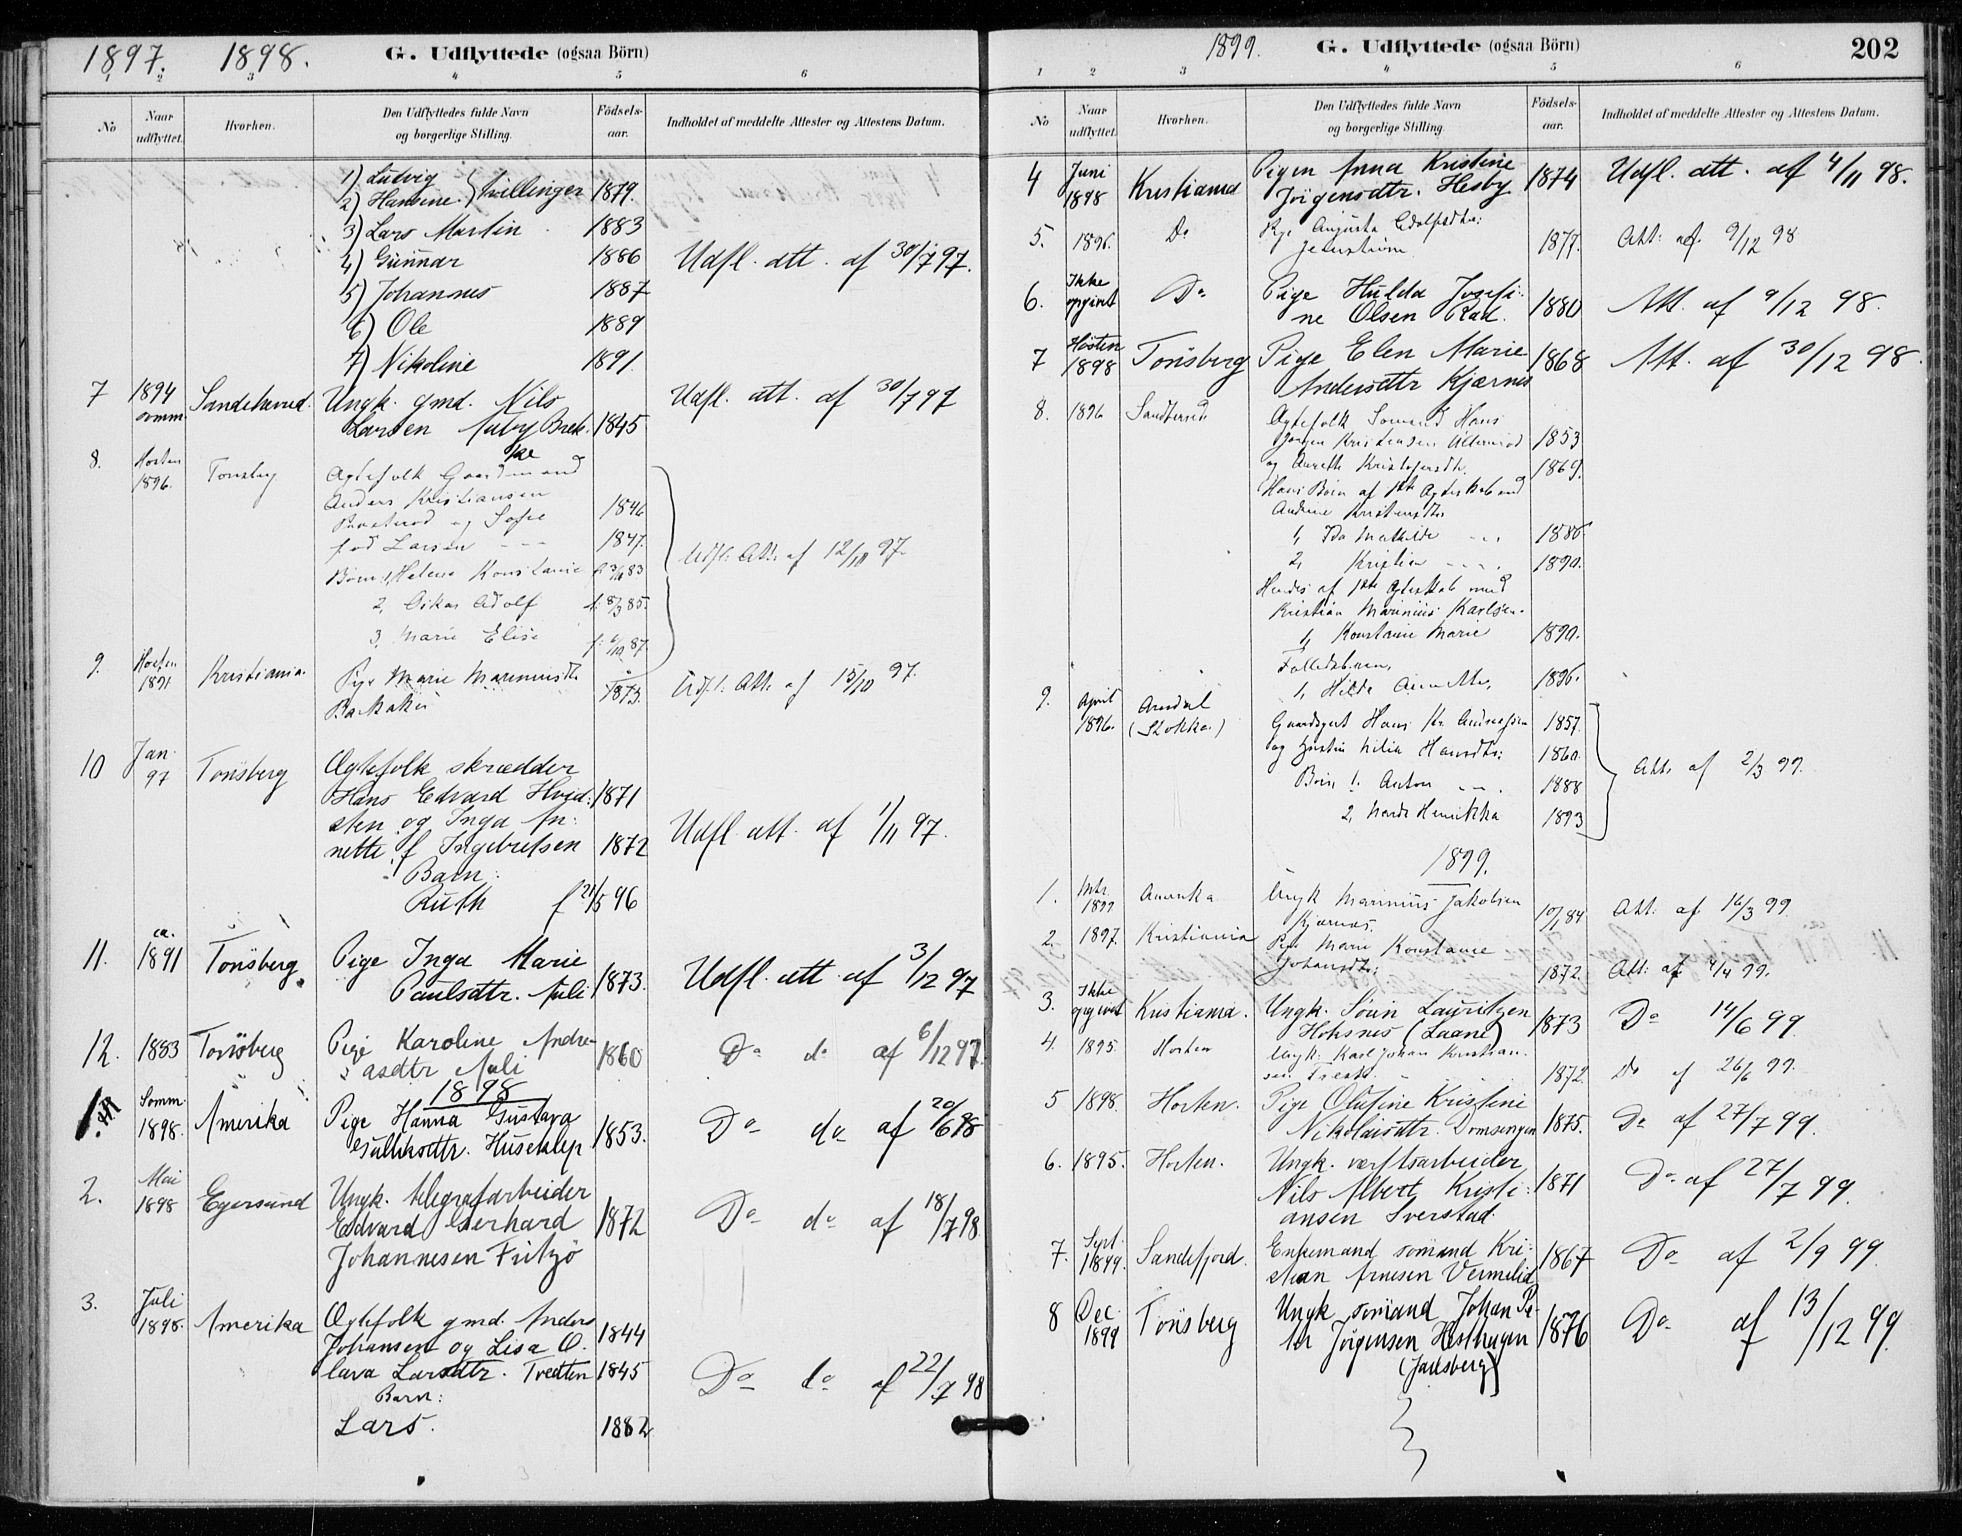 1897. 1898. G. Udflyttede (ogsaa Börn)
1 2 3 4 5 6
No
Naar udflyttet.
Hvorhen.
Den Udflyttedes fulde Navn og borgerlige Stilling.
Födsels-aar.
Indholdet af meddelte Attester og Attestens Datum.
1) Ludvig
2) Hansine } tvillinger 1879.
3) Lars Martin 1883
4) Gunnar 1886 Udfl. att. af 30/7 97.
5) Johannes 1887
6) Ole 1889
7) Nikoline 1891.
7 1894 Sandeherred. Ungk. gmd. Nils Udfl. att. af 30/7 97
somm. Larsen Auby Bræk- 1845
ke
8. Høsten Tønsberg Ægtefolk Gaardmand
1896. Anders Kristiansen 1846
og Sofie
fød Larsen 1847. Udfl. Att. af 12/10 97.
Børn 1, Helene Konstanse
2, Oskar Adolf
3, Marie Elise
9. Høsten Kristiania. Pige Marie Udfl. Att. af 15/10 97.
1891 1873.
10 Jan. Tønsberg Ægtefolk skrædder
97 Hans Edvard Hvid- 1871
sten og Inga An-
nette f. Ingebretsen 1872 Udfl. att. af 1/11 97.
Barn:
Ruth f 21/5 96
11. ca. 1891 Tønsberg. Pige Inga Marie
Paulsdtr. Auli 1873. Udfl. att. af 3/12 97
12. 1883 Tønsberg Pige Karoline Andre-
asdtr Auli 1860 Do do af 6/12 97.
1898
1. Somm. Amerika Pige Hanna Gustava
1898. Gulliksdtr. Huseklep 1853. Do do af 20/6 98
2. Mai Egersund Ungk. telegrafarbeider
1898 Edvard Gerhard 1872 Do do af 18/7 98
Johannesen Fritzö
3. Juli Amerika Ægtefolk gmd. Anders
1898. Johansen og Lisa O- 1844
lava Larsdtr. Tvedten 1845 Do do af 22/7 98
Barn:
Lars. 1882
1899. G. Udflyttede (ogsaa Börn) 202
1 2 3 4 5 6
No
Naar udflyttet.
Hvorhen.
Den Udflyttedes fulde Navn og borgerlige Stilling.
Födsels-aar.
Indholdet af meddelte Attester og Attestens Datum.
4 Juni Kristiania Pigen Anna Kristine
1898 Jörgensdtr. Hesby 1874 Udfl. att. af 4/11 98.
5. 1896. Do Pige Augusta Adolfsdtr:
1877. Att: af 9/12 98
6. Ikke Do Pige Hulda Josefi-
opgivet ne Olsen Rad. 1880 Att. af 9/12 98.
7 Høsten Tønsberg Pige Elen Marie 1868 Att. af 30/12 98.
1898 Andersdtr Kjærnes
8. 1896 Ægtefolk Sømand Hans
Jørgen Kristensen 1853
og Anette Kristofersdtr. 1869.
Hans Børn af 1ste Ægteskab med
Andrine Kristensdtr
1, Ida Mathilde 1886
2, Kristian 1890.
Hendes af 1ste Ægteskab med
Kristian Marinius Karlsen.
1, Konstanse Marie 1890.
Fællesbarn.
1, Hilda 1896.
9. April Arendal Gaardsgut Hans 1857.
1896. (Stokke.) og Hustru Hansdtr: 1860
Børn 1. Anton 1888 Att. af 2/3 99.
2, Henrikka 1893
1899.
1. Mts. Amerika Ungk Marinius Jakobsen
1899 Kjærnæs. Att: af 16/3 99
2. 1897. Kristiania Pige Marie Konstanse
Johansdtr: 1872. Att: af 4/4 99.
3. Ikke Kristiania. Ungk. Sörin Lauritzen
opgivet Hohsnes (Laane) 1873 Do 14/6 99.
4 1895. Horten Ungk: Karl Johan Kristian-
sen 1872. Do af 26/6 99.
5 1898. Horten. Pige Olufine Kristine
Nikolaisdtr. Domsengen 1875. Do af 27/7 99.
6. 1895. Horten. Ungk. verftsarbeider
Nils Albert Kristi- 1871 Do af 27/7 99.
ansen Sverstad.
7. Sept. Sandefjord. Enkemand sömand Kri- 1867 Do af 2/9 99.
1899. stian Arnesen Vermelid
8 Dec. Tønsberg Ungk sömand Johan Pe-
1899 ter Jörgensen Hesthagen 1876 Do af 13/12 99.
(Jarlsberg)